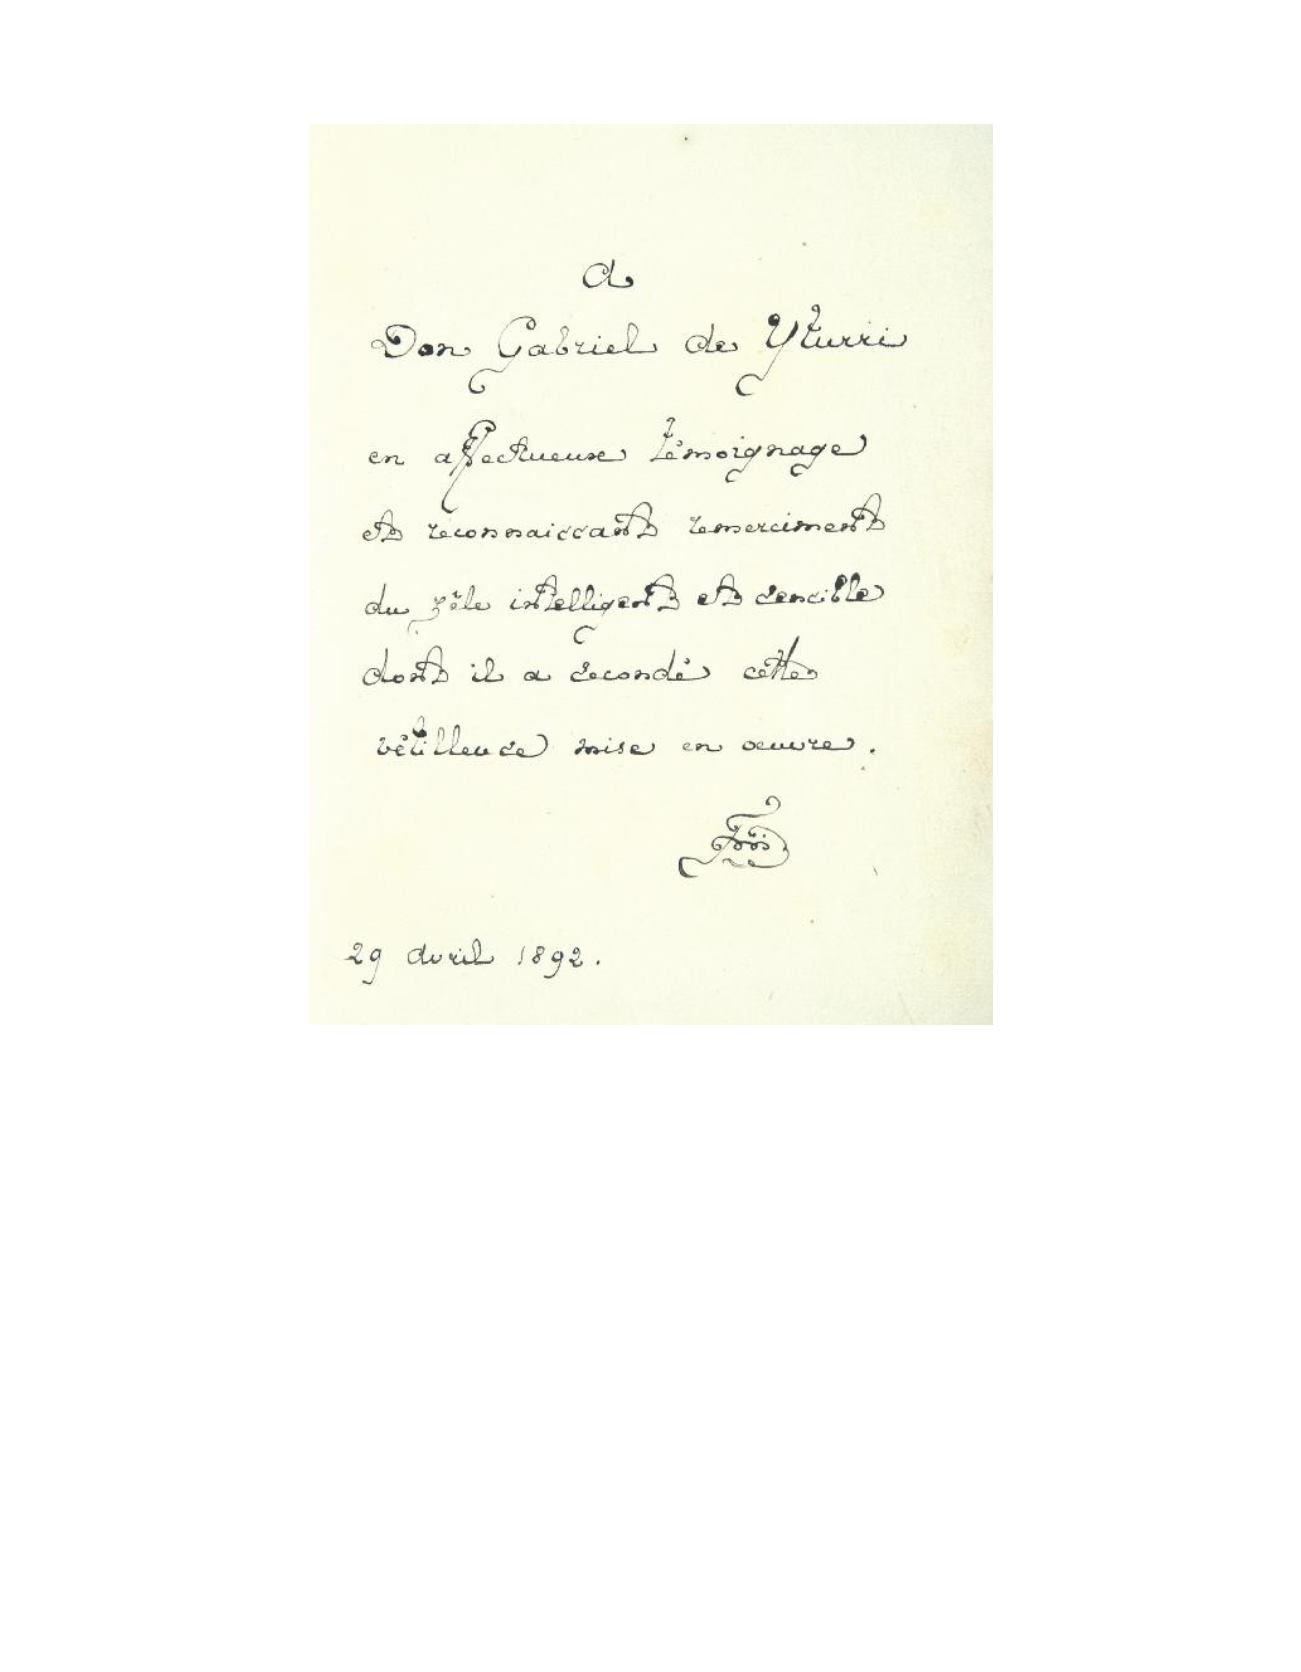 a
Don Gabriel de Yturri
en affectueux témoignage
et reconnaissant remerciment
du zèle intelligent et sensible
dont il a secondé cette
vétilleuse mise en œuvre.
29 avril 1892.